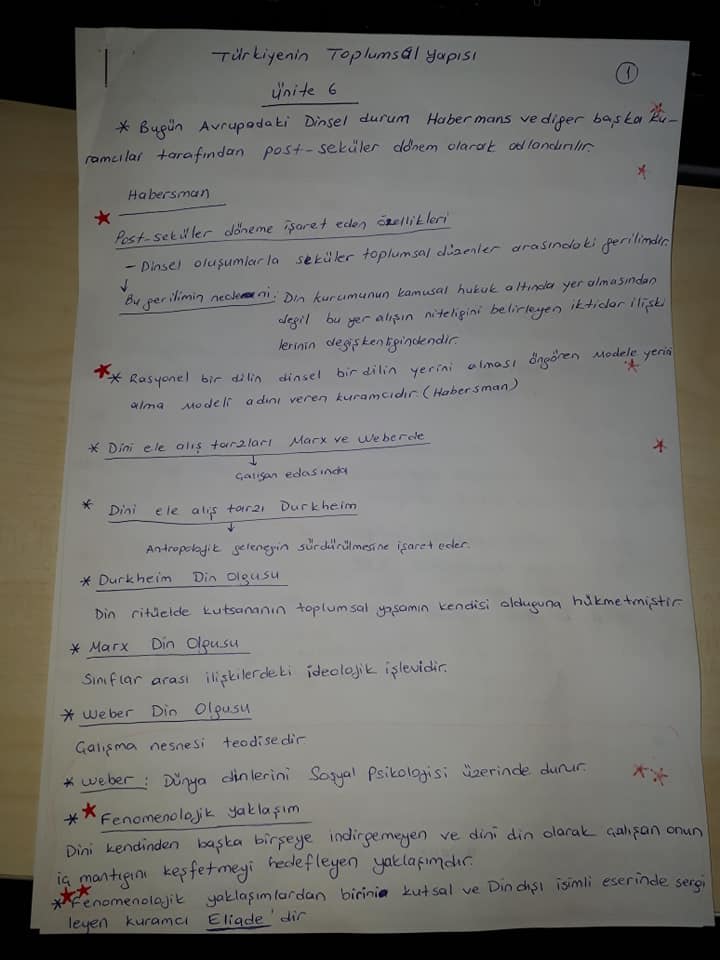 Türkiyenin Toplumsal yapısı
1
ünite 6
* Bugün Avrupadaki Dinsel durum Habermans ve diger başka ku-
ramcılar tarafından post-seküler dönem olarak adlandırılır.
Habersman
Post-seküler döneme işaret eden özellikleri
- Dinsel oluşumlarla seküler toplumsal düzenler arasındaki gerilimdir.
Bu gerilimin nedeni: Din kurumunun kamusal hukuk altında yer almasından
degil bu yer alışın niteligini belirleyen iktidar ilişki
lerinin degişkenliginden dir.
* Rasyonel bir dilin dinsel bir dilin yerini alması öngören modele yerini
alma modeli adını veren kuramcıdır. (Habersman)
* Dini ele alış tarzları Marx ve Weberde
↓
Çalışan edasında
* Dini ele alış tarzı Durkheim
↓
Antropolojik gelenegin sürdürülmesine işaret eder.
* Durkheim Din Olgusu
Din ritüelde kutsananın toplumsal yaşamın kendisi olduguna hükmetmiştir.
* Marx Din Olgusu
Sınıflar arası ilişkilerdeki ideolojik işlevidir.
* Weber Din Olgusu
Çalışma nesnesi teodisedir.
* Weber : Dünya dinlerini Sosyal Psikologisi üzerinde durur.
* Fenomenolojik yaklaşım
Dini kendinden başka birşeye indirgemeyen ve dini din olarak çalışan onun
iç mantıgını keşfetmeyi hedefleyen yaklaşımdır.
* Fenomenolojik yaklaşımlardan birini kutsal ve Dindışı isimli eserinde sergi
leyen kuramcı Eliade'dir